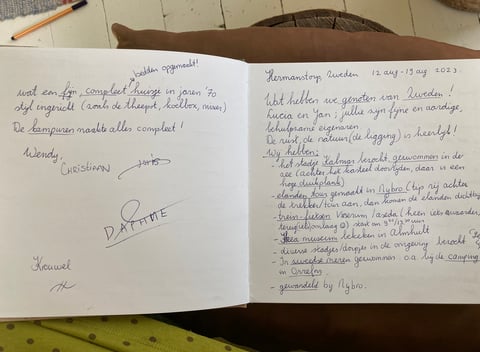 bedden opgemaakt!
wat een fijn, compleet huisje in jaren '70
stijl ingericht (zoals de theepot, koelbox, mixer)
De kampvuren maakte alles compleet!
Wendy
CHRISTIAAN
DAPHNE
Kouwel
Hermanstorp, Zweden 12 aug - 19 aug 2023.
Wat hebben we genoten van Zweden!
Lucia en Jan; jullie zijn fijne en aardige,
behulpzame eigenaren.
De rust, de natuur (de ligging) is heerlijk!
Wij hebben:
- het stadje Kalmar bezocht, gezwommen in de
zee (achter het kasteel doorrijden, daar is een
hoge duikplank)
- elanden tour gemaakt in Nybro (tip rij achter
de trekker/tour aan, dan komen de elanden dichtbij
- trein-fietsen
- Ikea museum bekeken in Älmhult
- diverse stadjes/dorpjes in de omgeving bezocht
- In meren gezwommen o.a. bij de camping
in Orrefors.
- gewandeld bij Nybro.